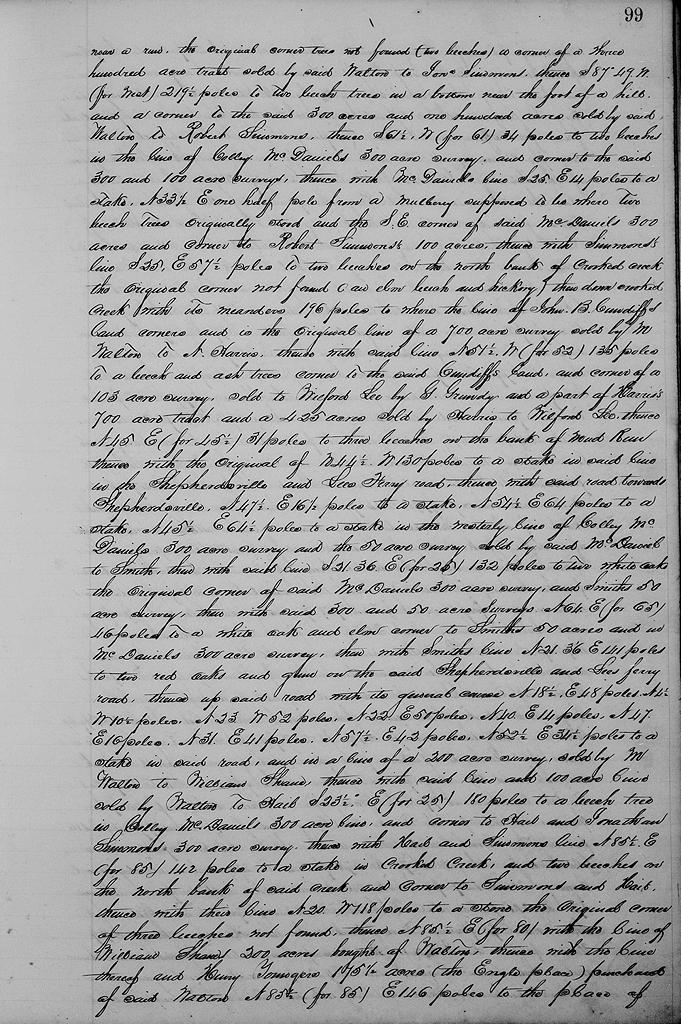 99
near a run, the original corner trees not found (two beeches) a corner of a three
hundred acre tract sold by said Walton to Jonc Simmons. thence S87°49 W.
(for West) 219½ poles to two beech trees in a bottom near the foot of a hill.
and a corner to the said 300 acres and one hundred acres sold by said
Walton to Robert Simmons, thence S61½ W (for 61) 34 poles to two beeches
in the line of Colley McDaniels 300 acre survey, and corner to the said
300 and 100 acre surveys, thence with McDaniels line S25 E14 poles to a
stake, N33½ E one half pole from a mulberry supposed to be where two
beech trees originally stood and the S.E. corner of said McDaniels 300
acres and corner to Robert Simmons's 100 acres, thence with Simmons's
line S25, E57½ poles to two beeches on the north bank of Crooked creek
the original corner not found (an elm beech and hickory) thence down crooked
creek with its meanders 196 poles to where the line of John. B. Cundiff's
land corners and in the original line of a 700 acre survey sold by M
Walton to N. Harris. thence with said line N51½ W (for 52) 135 poles
to a beech and ash trees corner to the said Cundiffs land, and corner of a
103 acre survey, sold to Wilford Lee by G. Grundy and a part of Harris's
700 acre tract and a 425 acres sold by Harris to Wilford Lee. thence
N45 E (for 45½) 31 poles to three beeches on the bank of Mud Run
thence with the original of N44½ W130 poles to a stake in said line
in the Shepherdsville and Lees Ferry road, thence with said road towards
Shepherdsville, N47½ E16½ poles to a stake, N54½ E64 poles to a
stake, N45½ E64½ poles to a stake in the westerly line of Colley Mc
Daniels 300 acre survey and the 50 acre survey sold by said McDaniel
to Smith, thence with said line S21.36 E (for 25) 132 poles to two white oaks
the original corner of said McDaniels 300 acre survey, and Smiths 50
acre survey, thence with said 300 and 50 acre surveys N64 E (for 65)
46 poles to a white oak and elm corner to Smiths 50 acres and in
McDaniels 300 acre survey, thence with Smiths line N21.36 E141 poles
to two red oaks and gum on the said Shepherdsville and Lees ferry
road, thence up said road with its general course N18½ E48 poles N4½
W10½ poles. N23 W52 poles. N22 E50 poles. N40 E14 poles. N47.
E16 poles. N31. E41 poles. N57½ E42 poles. N52½ E34½ poles to a
stake in said road, and in a line of a 200 acre survey, sold by M
Walton to William Shaw, thence with said line and 100 acre line
sold by Walton to Hail S23½ E (for 25) 180 poles to a beech tree
in Colley McDaniels 300 acre line, and corner to Hail and Jonathan
Simmons 300 acre survey. thence with Hail and Simmons line N85½ E
(for 85) 142 poles to a stake in Crooked Creek, and two beeches on
the north bank of said creek and corner to Simmons and Hail.
thence with their line N20. W118 poles to a stone the original corner
of three beeches not found. thence N85½ E (for 80) with the line of
William Shaws 200 acres bought of Walton, thence with the line
thereof and Henry 195½ acres (the Engle place) purchased
of said Walton N85½ (for 85) E146 poles to the place of